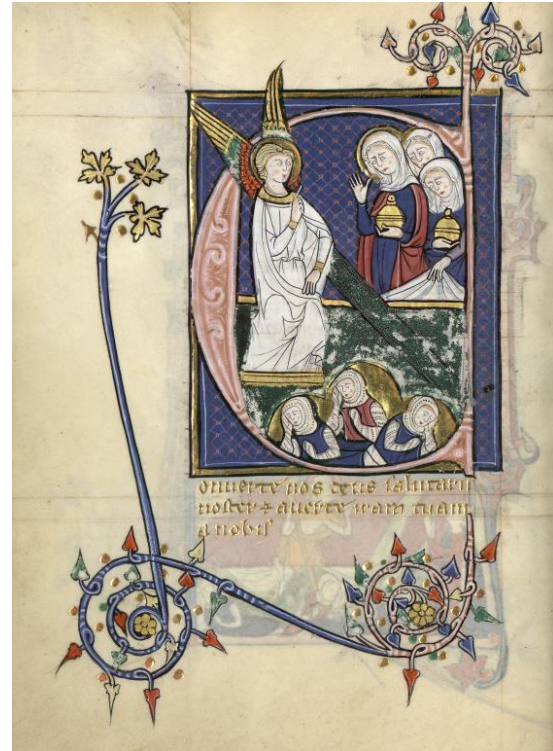 onuerte nos deus salutaris
noster ⁊ auerte iram tuam
a nobis